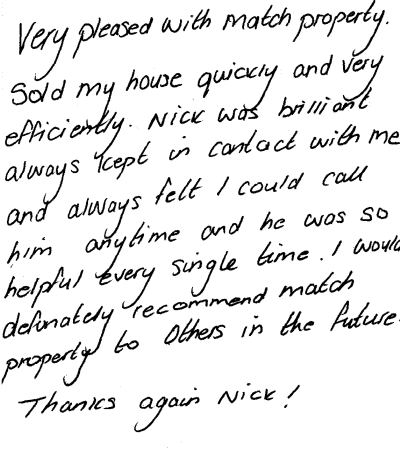 Very pleased with match property.
Sold my house quickly and very
efficiently. Nick was brilliant
always kept in contact with me
and always felt I could call
him anytime and he was so
helpful every single time. I would
definately recommend match
property to others in the future.
Thanks again Nick!